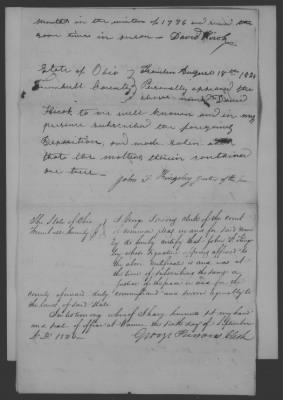 months in the winter of 1776 and said the
same time in person — David Hicok
State of Ohio } Franklin August 18th 1820
Trumbull County } Personally appeared the
above David
Hicok to me well known and in my
presence subscribed the foregoing
deposition, and made oath
that the matters therein contained
are true — 
John F. Kingsley Justice of the peace
The State of Ohio
Trumbull County } I George Parsons clerk of the court
of common pleas in and for said county
do hereby certify that John F. Kings
ley whose signature appears affixed to
the above certificate is and was at
the time of subscribing the same a
justice of the peace in and for the
county aforesaid duly commissioned and sworn agreeably to
the laws of said State
In testimony whereof I have hereunto set my hand
and seal of office at Warren the sixth day of September
A D 1820
George Parsons Clerk